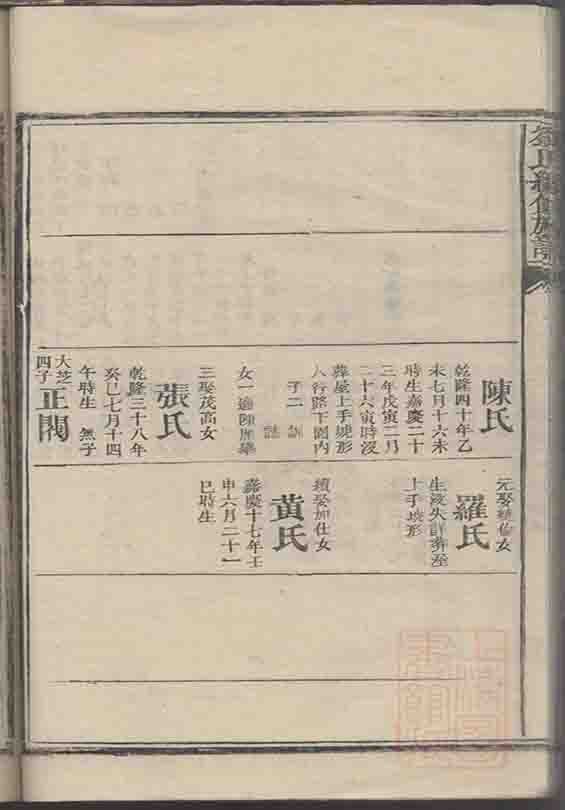 氏續修族譜
陳氏
乾隆四十年乙
未七月十六未
時生嘉慶二十
三年戊寅二月
二十六寅時沒
葬屋上手塝形
人行路下園内
子二
女一適陳
三娶茂高女
張氏
乾隆三十八年
癸巳七月十四
午時生 無子
大芝
四子
正閣
元娶 女
羅氏
生沒失詳葬
上手塝形
續娶加仕女
黃氏
嘉慶十七年壬
申六月二十一
巳時生
上海圖
書館藏